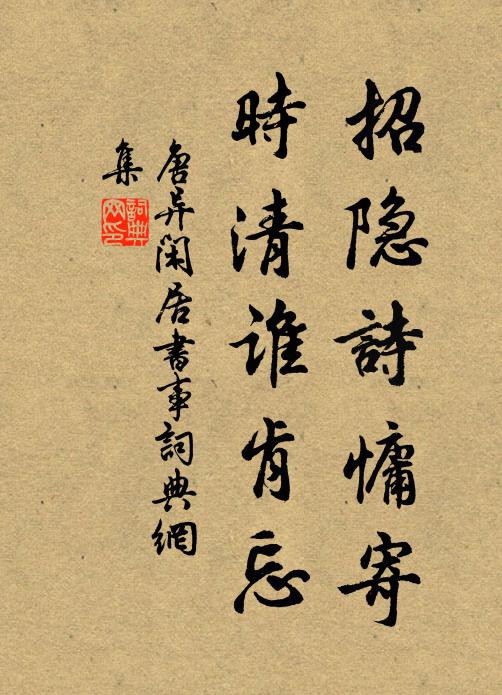 招隐詩慵寄
時清誰肯忘
唐异闲居書事詞典網
集
詞典网印